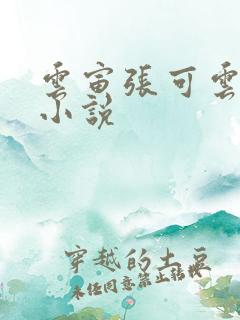 雲宙張可雲
小說
穿越的土豆
未任同意禁止转载